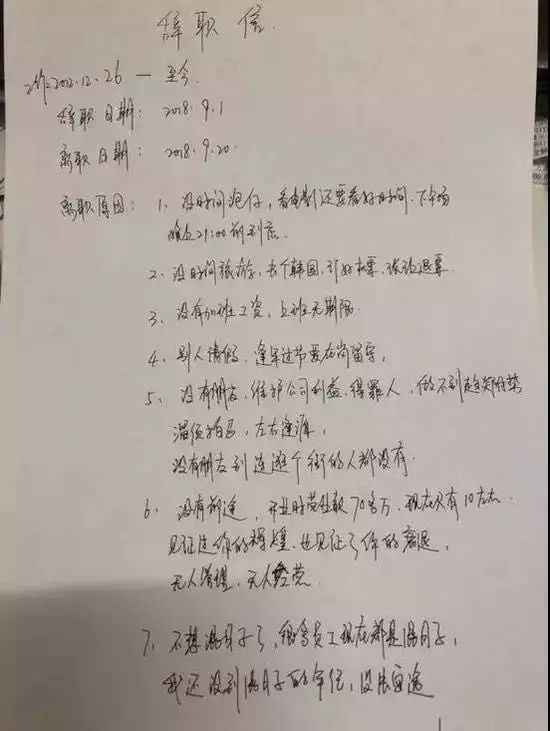 辞职信
工作:2012.12.26 — 至今
辞职日期: 2018.9.1
离职日期: 2018.9.20
离职原因: 1、没时间泡仔,看电影还要看好时间、下午场
晚上21:00前到底.
2、没时间旅游,去个韩国,订好机票、被迫退票
3、没有加班工资,上班无期限.
4、别人请假,逢年过节要在岗留守,
5、没有朋友,维护公司利益、得罪人,做不到趋炎附势
溜须拍马,左右逢源,
没有朋友到连逛个街的人都没有.
6、没有前途,开业时营业款70多万,现在只有10左右.
见证过你的辉煌.也见证了你的衰退,
无人管理,无人经营.
7、不想混日子了,很多员工现在都是混日子,
我还没到混日子的年纪,没法